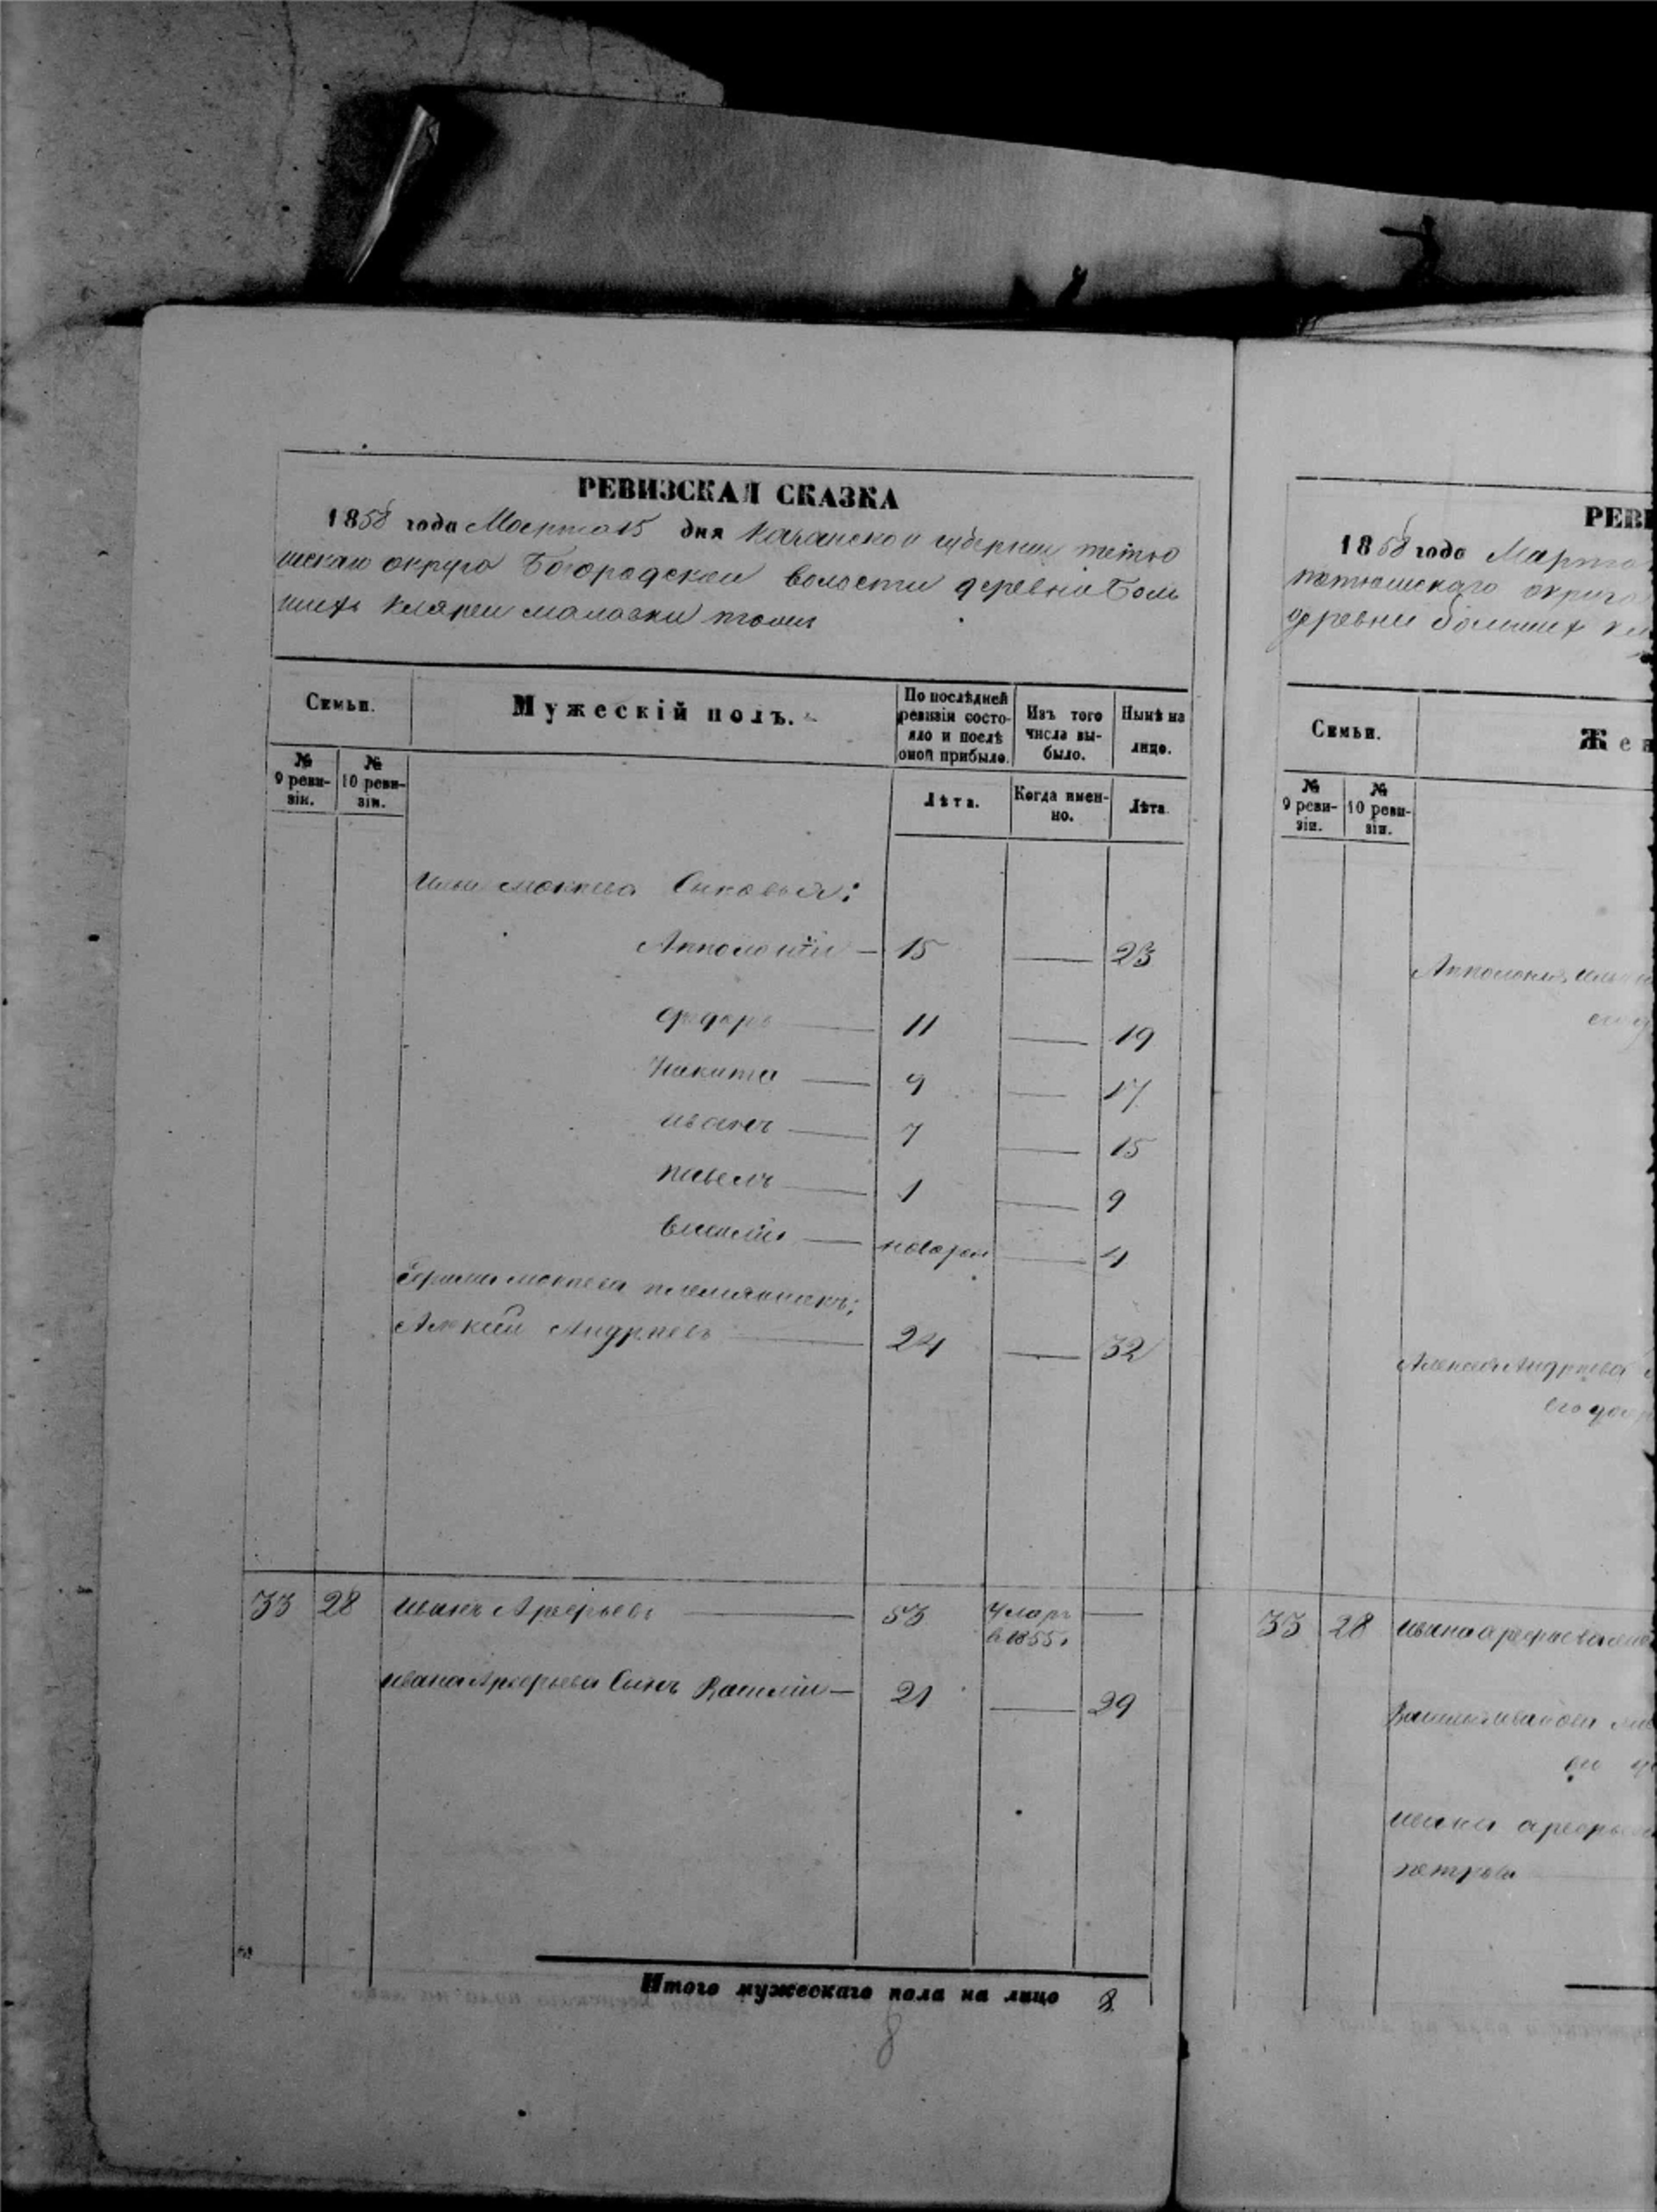 РЕВИЗСКАЯ СКАЗКА
1858 года Марта 15 дня Казанской губернии тетю
шскаго округа Богородской волости деревни Боль
шихъ Кляреи
Семьи.
Мужескій полъ.
По послѣдней ревизіи состояло и послѣ оной прибыло.
Изъ того числа выбыло.
Нынѣ на лицо.
№ 9 ревизіи.
№ 10 ревизіи.
Лѣта.
Когда именно.
Лѣта.
Ильи Мокѣева Сыновья:
Апполоній — 15 — 23
Ѳедоръ — 11 — 19
Никита — 9 — 17
Иванъ — 7 — 15
Павелъ — 1 — 9
Василій — новорож — 4
Мокѣева племянникъ;
Алексѣй Андрѣевъ — 24 — 32
33 28 Иванъ Арефьевъ — 53 Умеръ —
в 1855.
Ивана Арефьева Сынъ Василій — 21 — 29
Итого мужескаго пола на лицо 8.
8
РЕВИ
1858 года Марта
тетюшскаго округа
деревни большихъ
Семьи.
Жен
№ 9 ревизіи.
№ 10 ревизіи.
Алексея Андрѣева
его
33 28 Ивана Арефьева
Василья Иванова
Ивана Арефьева
петрова